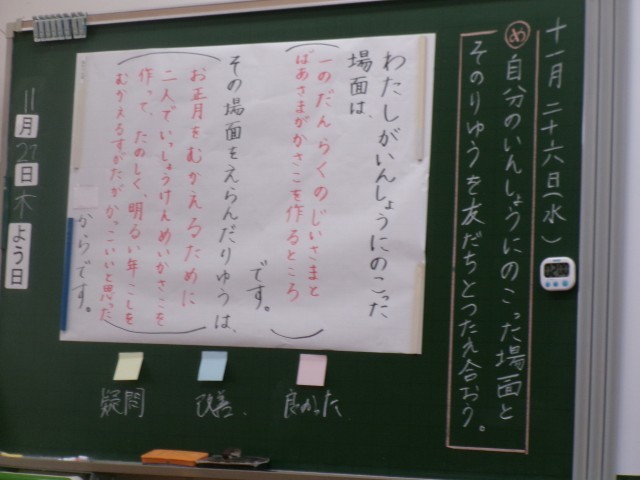 十一月二十六日(水)
め 自分のいんしょうにのこった場面と
そのりゆうを友だちとつたえ合おう。
わたしがいんしょうにのこった
場面は、
(一のだんらくのじいさまと
ばあさまがかさこを作るところ)
です。
その場面をえらんだりゆうは、
(お正月をむかえるために
二人でいっしょうけんめいかさこを
作って、たのしく、明るい年こしを
むかえるすがたがかっこいいと思った)
からです。
良かった
改善
疑問
11月27日木よう日